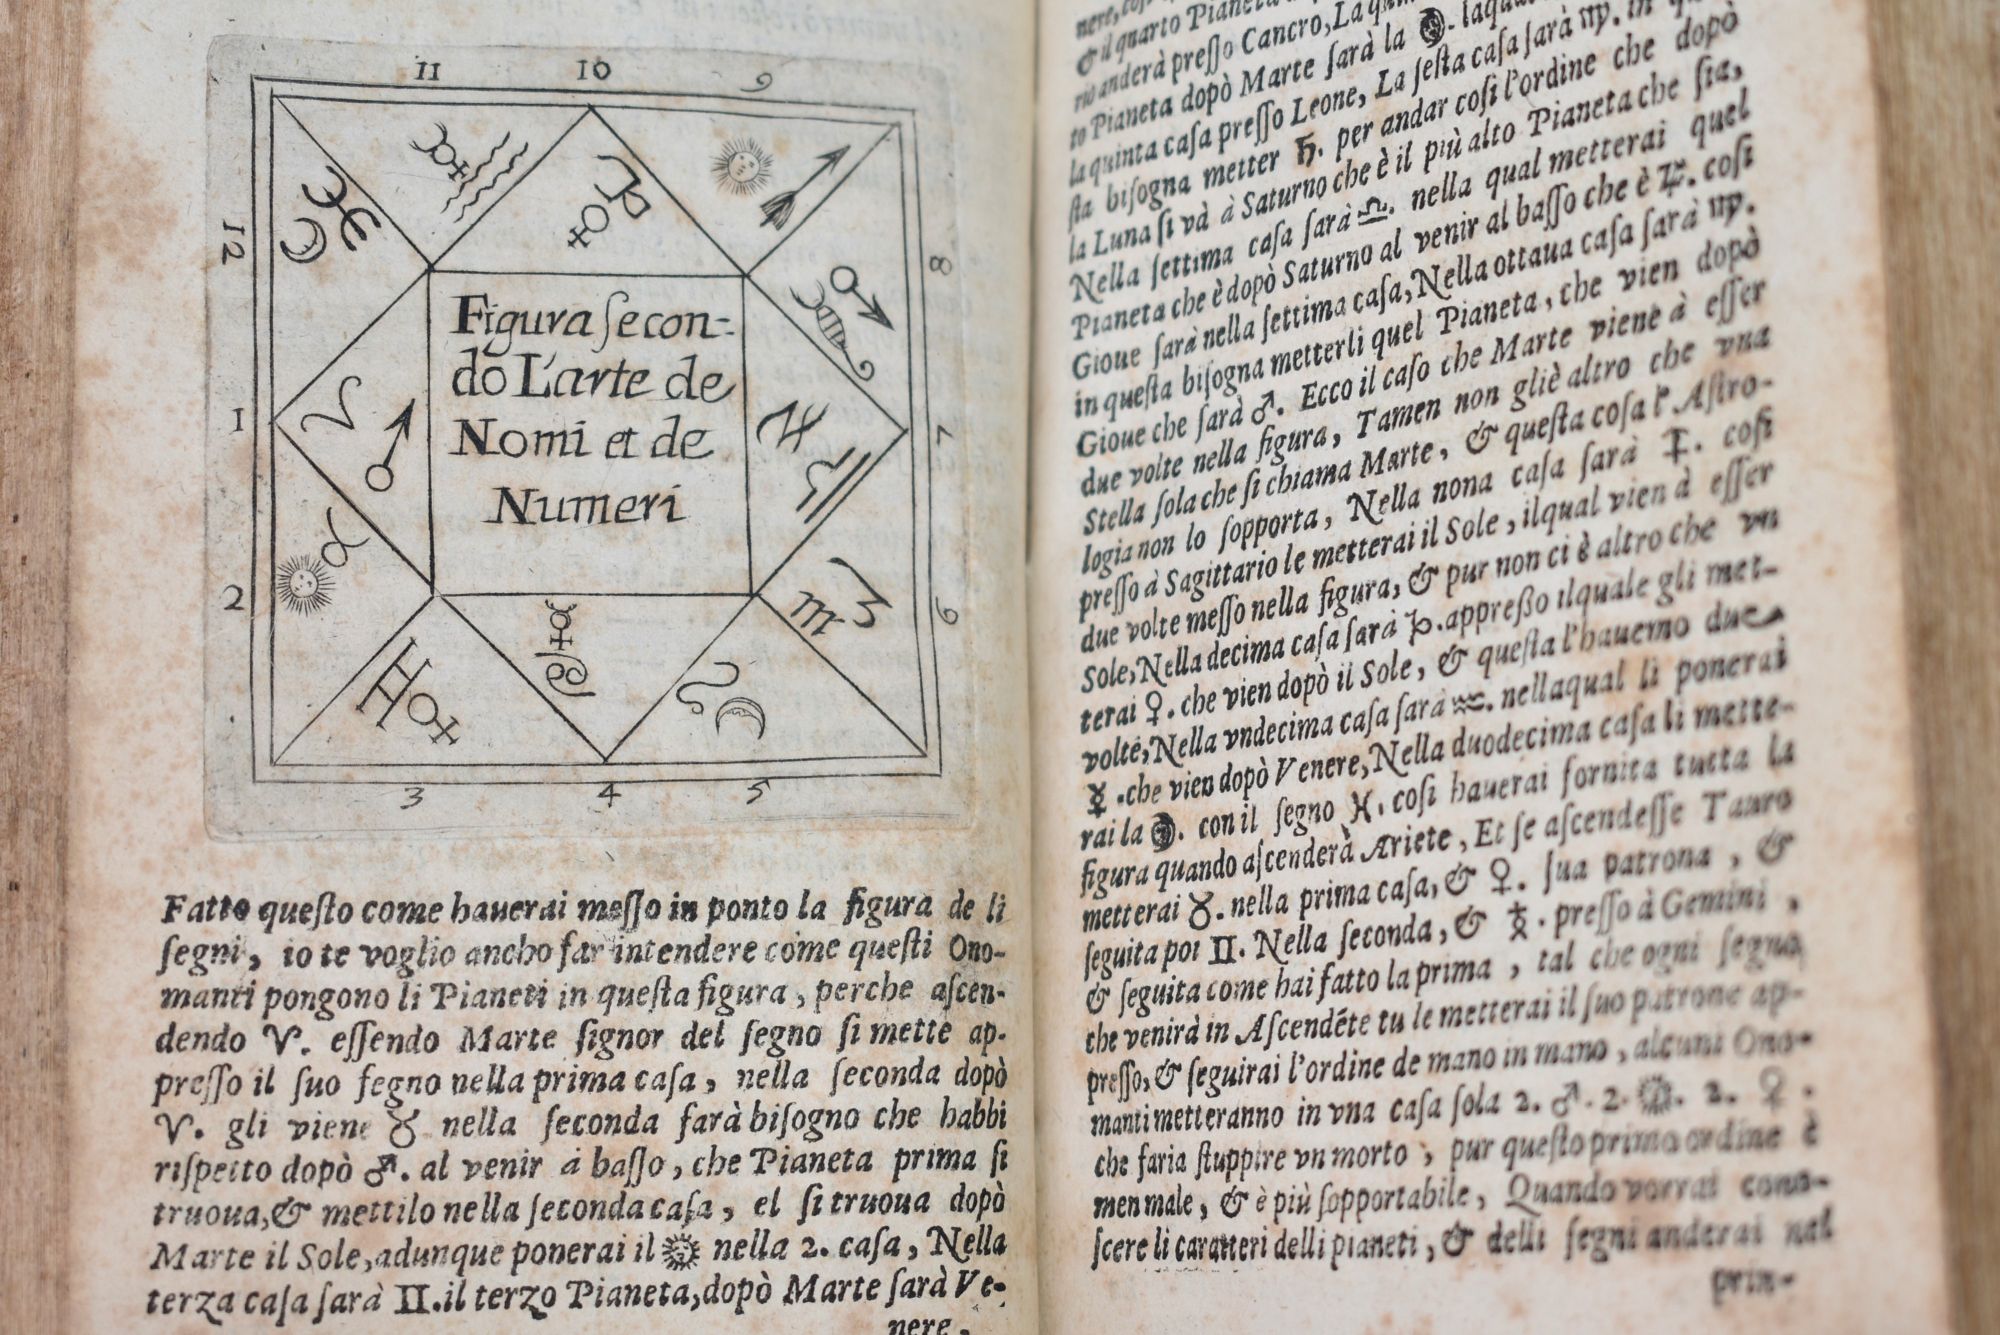 11 10 9
12 8
1 7
2 6
3 4 5
Figura secon-
do L'arte de
Nomi et de
Numeri
Fatto questo come hauerai messo in ponto la figura de li
segni, io te voglio ancho far intendere come questi Ono-
manti pongono li Pianeti in questa figura, perche ascen-
dendo ♈. essendo Marte signor del segno si mette ap-
presso il suo segno nella prima casa, nella seconda dopò
♈. gli viene ♉ nella seconda farà bisogno che habbi
rispetto dopò ♂. al venir à basso, che Pianeta prima si
truoua, & mettilo nella seconda casa, el si truoua dopò
Marte il Sole, adunque ponerai il ☉ nella 2. casa, Nella
terza casa sarà ♊. il terzo Pianeta, dopò Marte sarà Ve-
nere,
& il quarto Pianeta
rio anderà presso Cancro, La
to Pianeta dopò Marte sarà la ☽.
la quinta casa presso Leone, La sesta casa sarà ♍. in
sta bisogna metter ♄. per andar cosi l'ordine che dopò
la Luna si và à Saturno che è il più alto Pianeta che sia,
Nella settima casa sarà ♎. nella qual metterai quel
Pianeta che è dopò Saturno al venir al basso che è ♃. cosi
Gioue sarà nella settima casa, Nella ottaua casa sarà ♍.
in questa bisogna metterli quel Pianeta, che vien dopò
Gioue che sarà ♂. Ecco il caso che Marte viene à esser
due volte nella figura, Tamen non gliè altro che vna
Stella sola che si chiama Marte, & questa cosa l'Astro-
logia non lo sopporta, Nella nona casa sarà ♐. cosi
presso à Sagittario le metterai il Sole, ilqual vien à esser
due volte messo nella figura, & pur non ci è altro che vn
Sole, Nella decima casa sarà ♑. appresso ilquale gli met-
terai ♀. che vien dopò il Sole, & questa l'hauemo due
volte, Nella vndecima casa sarà ♒. nellaqual li ponerai
☿. che vien dopò Venere, Nella duodecima casa li mette-
rai la ☽. con il segno ♓. cosi hauerai fornita tutta la
figura quando ascenderà Ariete, Et se ascendesse Tauro
metterai ♉. nella prima casa, & ♀. sua patrona, &
seguita poi ♊. Nella seconda, & ☿. presso à Gemini,
& seguita come hai fatto la prima, tal che ogni segno
che venirà in Ascendéte tu le metterai il suo patrone ap-
presso, & seguirai l'ordine de mano in mano, alcuni Ono-
manti metteranno in vna casa sola 2. ♂. 2. ☉. 2. ♀.
che faria stuppire vn morto, pur questo primo ordine è
men male, & è più sopportabile, Quando vorrai cono-
scere li caratteri delli pianeti, & delli segni anderai nel
prin-